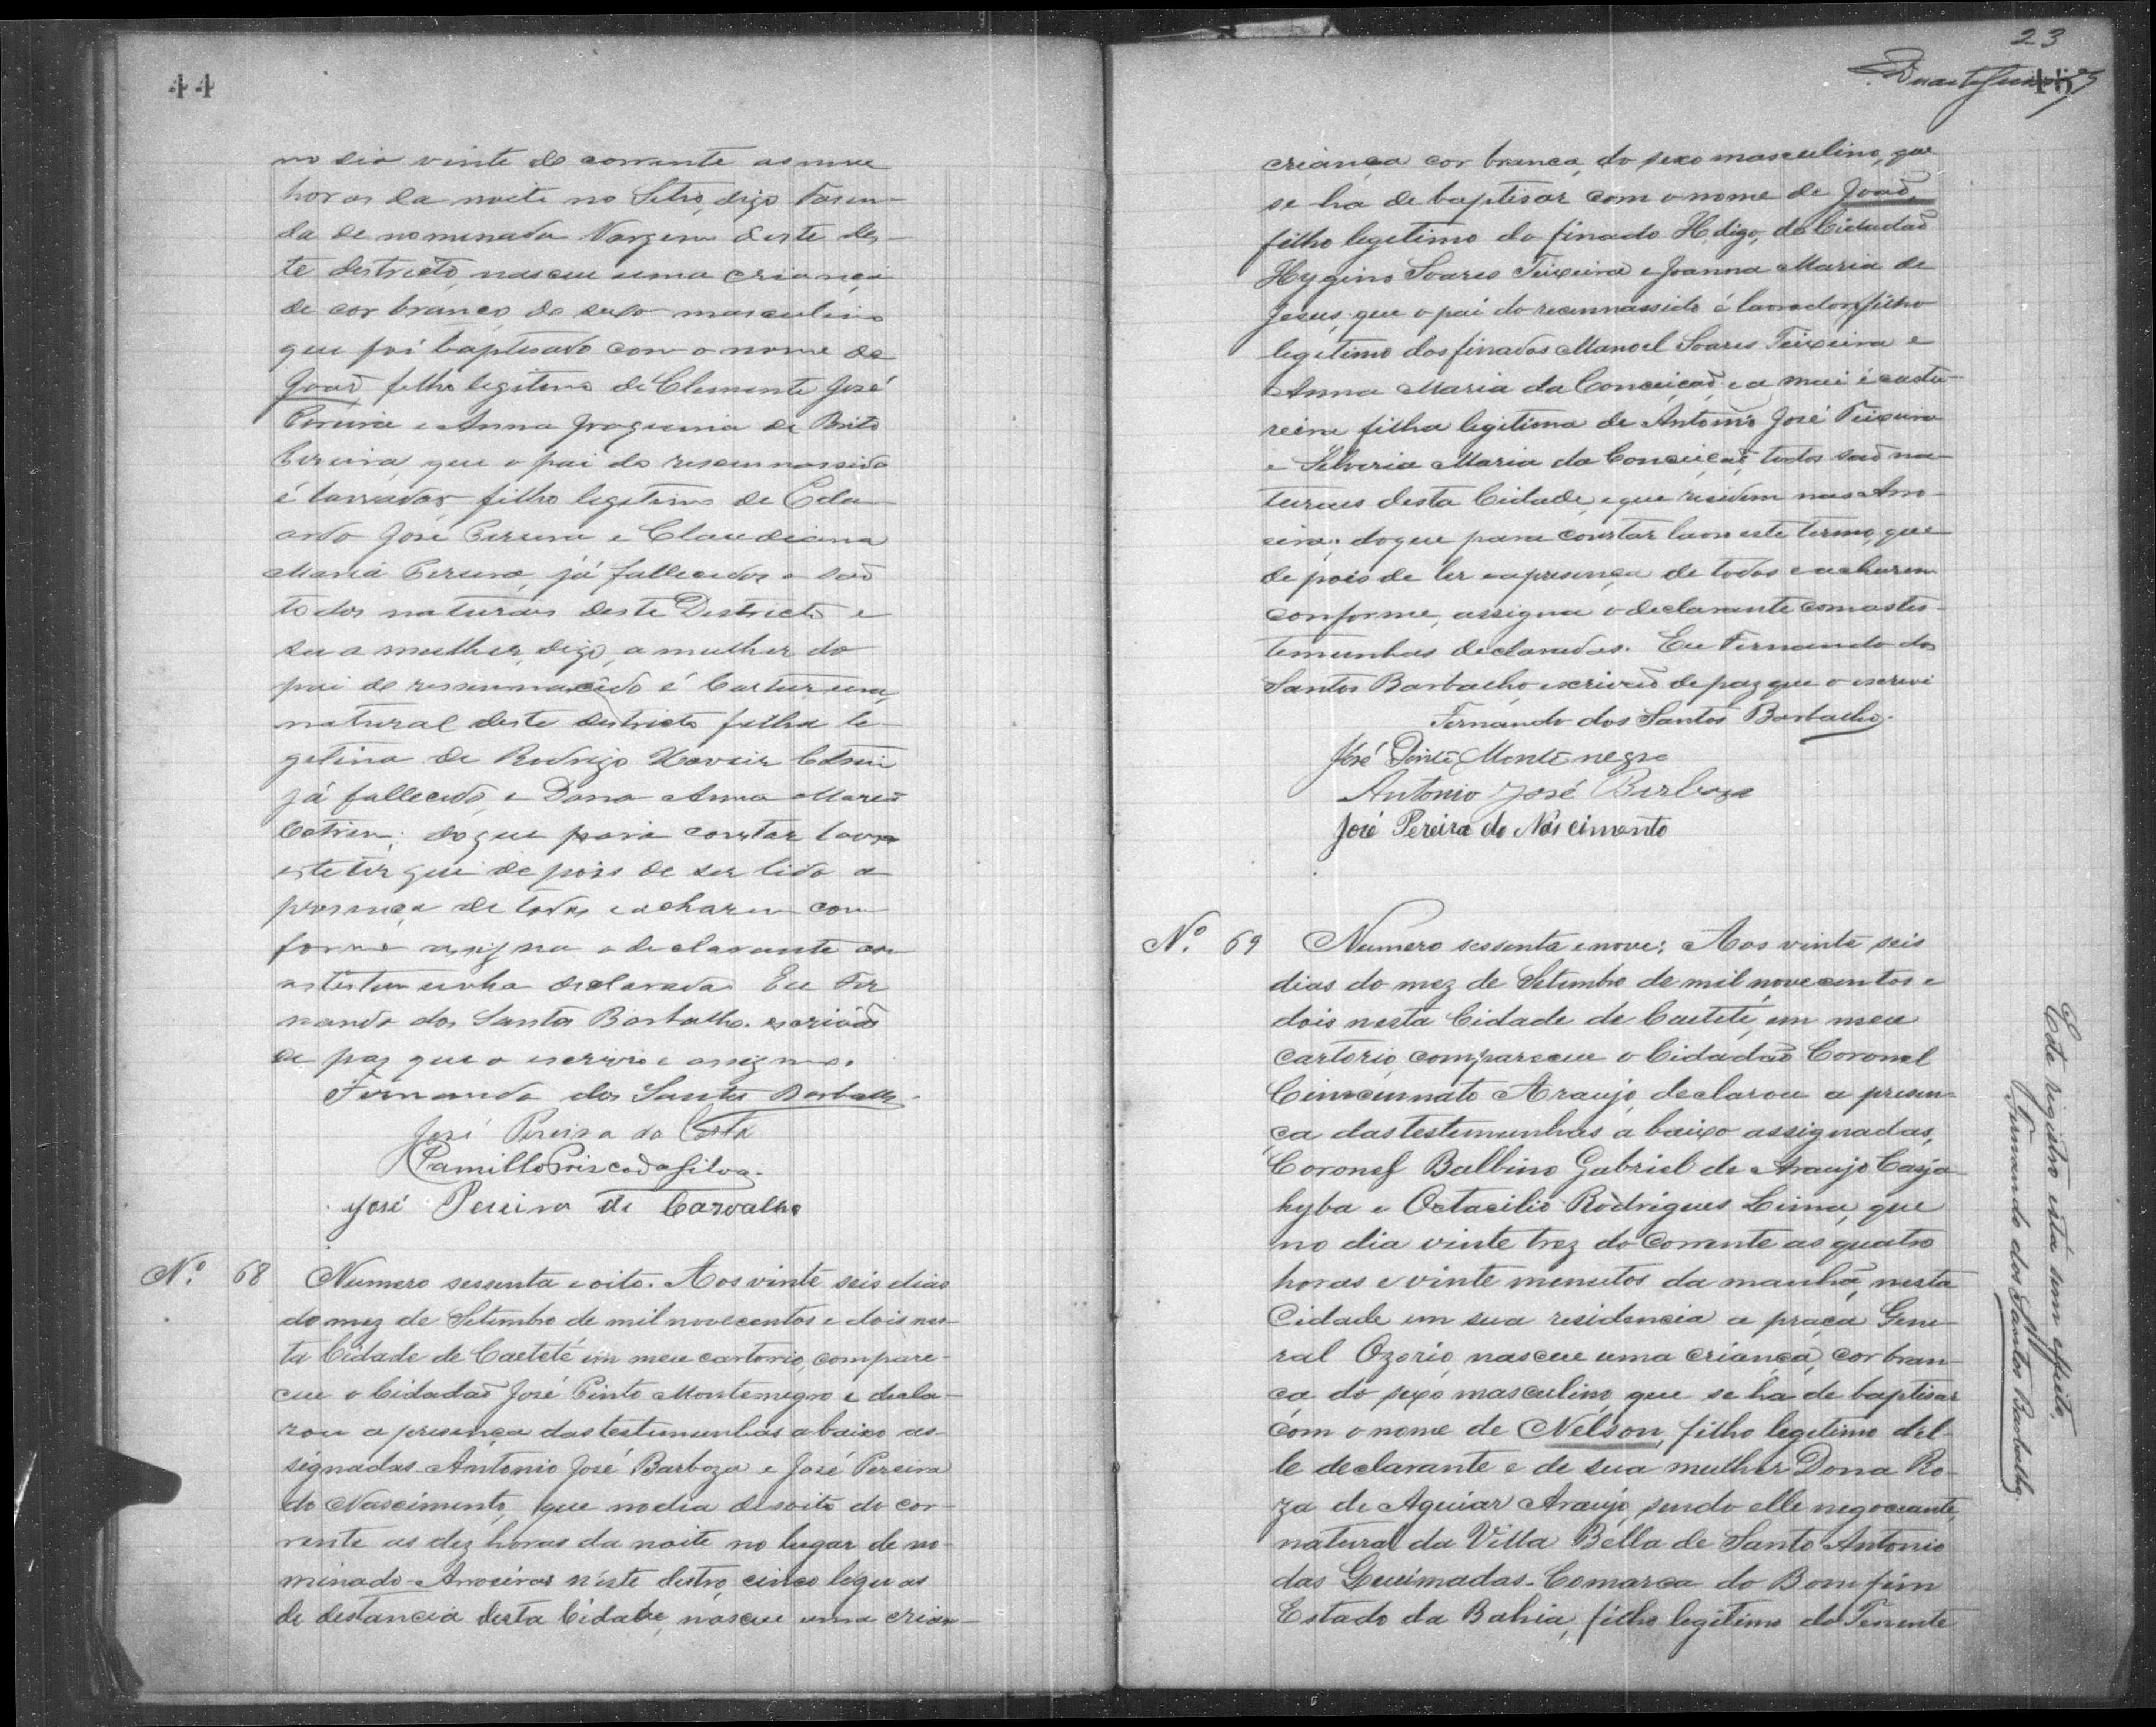 44
no dia vinte do corrente as nove
horas da noite no Sitio, digo Fasen-
da de nominada Vargem deste des-
te destricto, nasceu uma criança
de cor branca do sexo masculino
que foi baptisado com o nome de
João, filho legitimo de Clemente José
Pereira e Anna Joaquina de Brito
Pereira, que o pai do rescemnassido
é lavrador filho legitimo de Edu
ardo José Pereira e Claudiana
Maria Pereira, já fallecidos e são
todos naturaes deste Districto e
sua mulher, digo, a mulher do
pai do rescemnascido é Costureira,
natural deste districto filha le-
getima de Rodrigo Xavier Cotrim
já fallecido e Dona Anna Maria
Cotrim; do que para constar lavro
este ter que de pois de ser lido a
presença de todos e acharem con
forme assigna o declarante com
as testemunha declarada. Eu Fer
nando dos Santos Barbalho. escrivão
de paz que o escrivi e assigno.
Fernando dos Santos Barbalho.
José Pereira da Costa
Camillo Prisco da Silva.
José Pereira de Carvalho
Nº. 68 Numero sessenta e oito. Aos vinte seis dias
do mez de Setembro de mil novecentos e dois nes-
ta Cidade de Caeteté em meu cartorio, compare-
ceu o Cidadão José Pinto Montenegro e decla-
rou a presença das testemunhas abaixo as-
signadas Antonio José Barboza e José Pereira
do Nascimento, que no dia desoito do cor-
rente as dez horas da noite no lugar de no-
minado - Aroeiras n'este destro, cinco leguas
de destancia desta Cidade, nasceu uma crian-
23
45
criança cor branca, do sexo masculino, que
se ha de baptisar com o nome de João,
filho legitimo do finado H, digo, do Cidadão
Hygino Soares Teixeira e Joanna Maria de
Jesus; que o pai do recennassido é lavrador, filho
legitimo dos finados Manoel Soares Teixeira e
Anna Maria da Conceição, e a mai é costu-
reira filha legitima de Antonio José Teixeira
e Silveria Maria da Conceição, todos são na-
turaes desta Cidade, e que residem nas Aro-
eira; do que para constar lavro este termo, que
de pois de ler a presença de todos e acharem
conforme, assigna o declarante com as tes-
temunhas declaradas. Eu Fernando dos
Santos Barbalho, escrivão de paz que o escrevi
Fernando dos Santos Barbalho.
José Pinto Montenegro
Antonio José Barboza
José Pereira do Nascimento
Nº. 69 Numero sessenta e nove; Aos vinte seis
dias do mez de Setembro de mil novecentos e
dois nesta Cidade de Caeteté, em meu
cartorio, compareceu o Cidadão Coronel
Cincinnato Araujo, declarou a presen-
ça das testemunhas a baixo assignadas,
Coronel Balbino Gabriel de Araujo Casja-
hyba e Octacilio Rodrigues Lima, que
no dia vinte trez do corrente as quatro
horas e vinte menutos da manhã, nesta
Cidade em sua residencia a praça Gene-
ral Ozorio, nasceu uma criança, cor bran-
ca do sexo masculino, que se ha de baptisar
com o nome de Nelson, filho legetimo del-
le declarante e de sua mulher Dona Ro-
za de Aguiar Araujo, sendo elle negociante,
natural da Villa Bella de Santo Antonio
das Queimadas - Comarca do Bomfim
Estado da Bahia, filho legitimo do Tenente
Este rigistro está sem effeito,
Fernando dos Santos Barbalho.